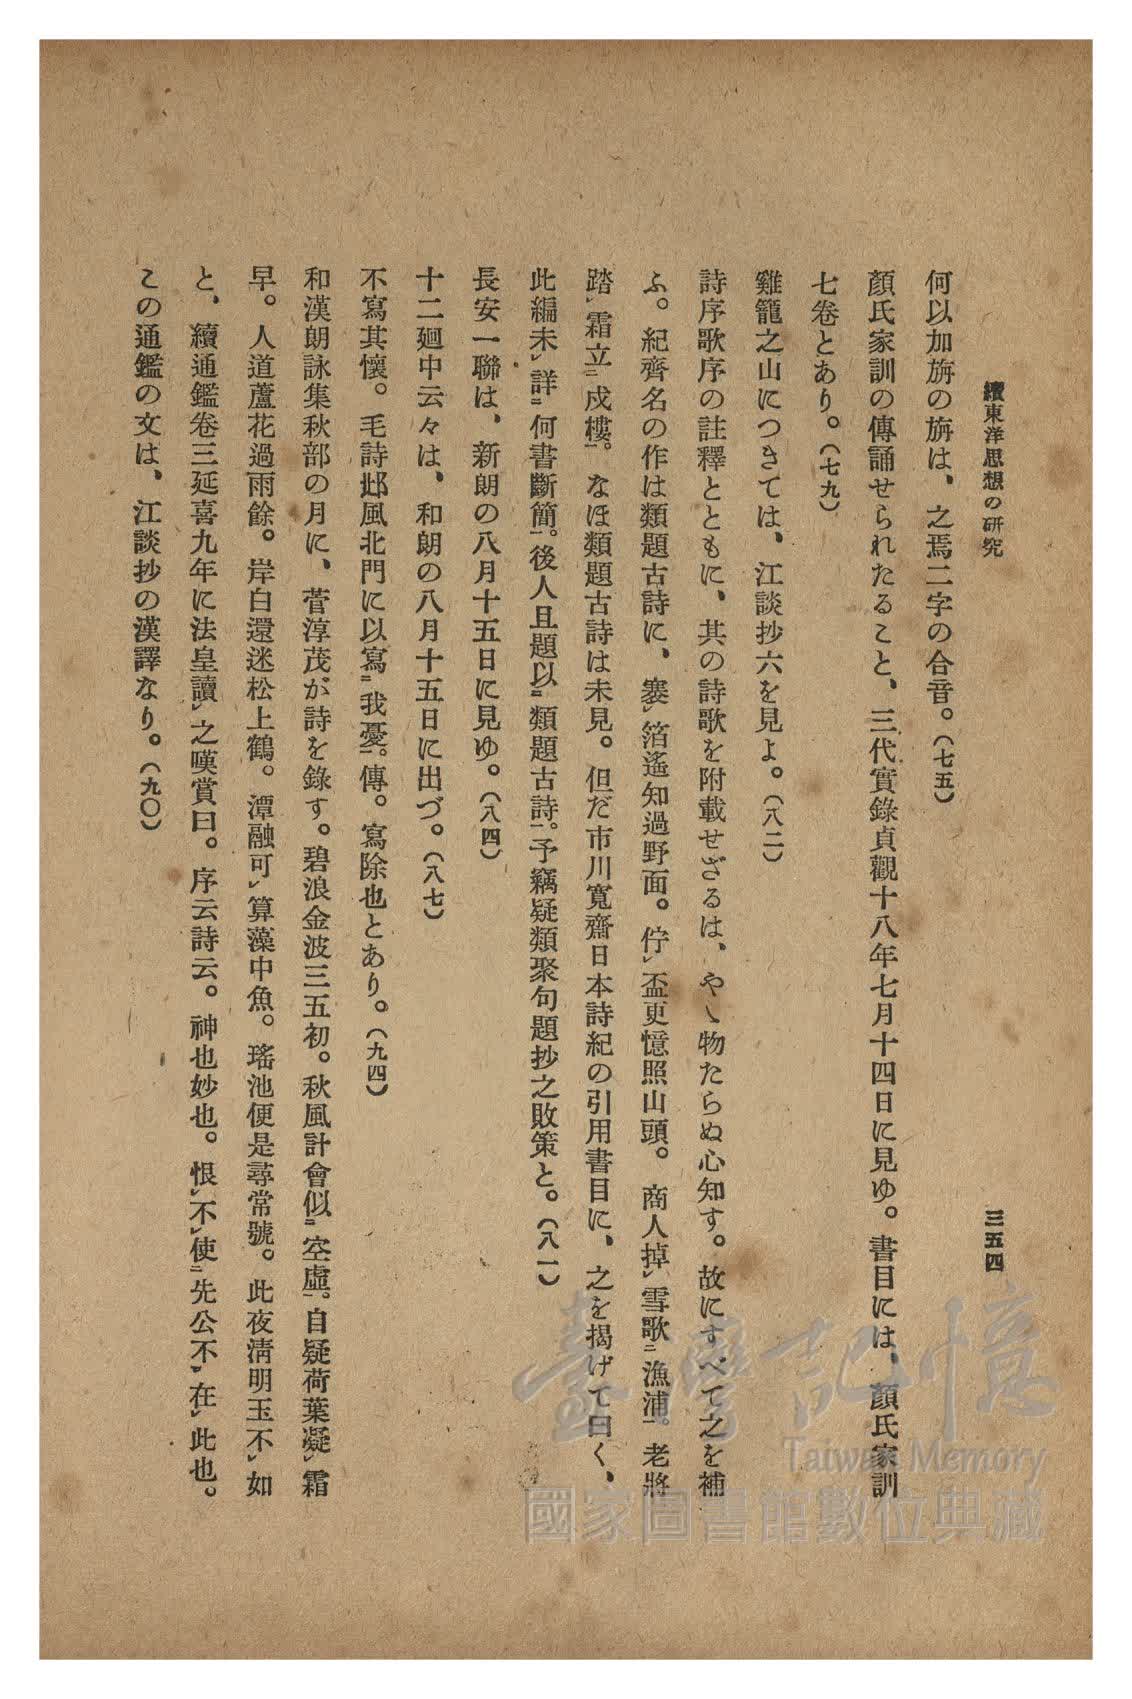 續東洋思想の研究
三五四
何以加旃の旃は、之焉二字の合音。(七五)
顏氏家訓の傳誦せられたること、三代實錄貞觀十八年七月十四日に見ゆ。書目には、顏氏家訓
七卷とあり。(七九)
雞籠之山につきては、江談抄六を見よ。(八二)
詩序歌序の註釋とともに、其の詩歌を附載せざるは、やゝ物たらぬ心知す。故にすべて之を補
ふ。紀齊名の作は類題古詩に、褰レ箔遙知過野面。佇レ盃更憶照山頭。商人掉レ雪歌二漁浦一。老將
踏レ霜立二戍樓一。なほ類題古詩は未見。但だ市川寬齋日本詩紀の引用書目に、之を揭げて曰く、
此編未レ詳二何書斷簡一。後人且題以二類題古詩一。予竊疑類聚句題抄之敗策と。(八一)
長安一聯は、新朗の八月十五日に見ゆ。(八四)
十二廻中云々は、和朗の八月十五日に出づ。(八七)
不寫其懷。毛詩邶風北門に以寫二我憂一。傳。寫除也とあり。(九四)
和漢朗詠集秋部の月に、菅淳茂が詩を錄す。碧浪金波三五初。秋風計會似二空虛一。自疑荷葉凝レ霜
早。人道蘆花過雨餘。岸白還迷松上鶴。潭融可レ算藻中魚。瑤池便是尋常號。此夜淸明玉不レ如
と、續通鑑卷三延喜九年に法皇讀レ之嘆賞曰。序云詩云。神也妙也。恨レ不レ使二先公不一レ在レ此也。
この通鑑の文は、江談抄の漢譯なり。(九〇)
臺灣記憶
Taiwan Memory
國家圖書館數位典藏